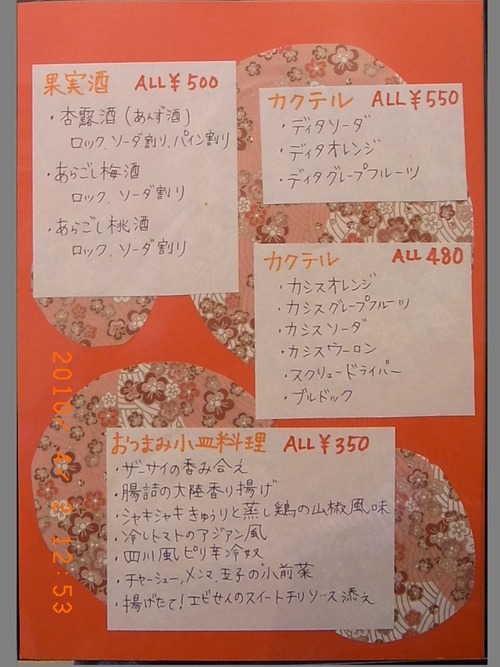 果実酒 ALL¥500
・杏露酒(あんず酒)
ロック、ソーダ割り、パイン割り
・あらごし梅酒
ロック、ソーダ割り
・あらごし桃酒
ロック、ソーダ割り
カクテル ALL¥550
・ディタソーダ
・ディタオレンジ
・ディタグレープフルーツ
カクテル ALL 480
・カシスオレンジ
・カシスグレープフルーツ
・カシスソーダ
・カシスウーロン
・スクリュードライバー
・ブルドック
おつまみ小皿料理 ALL¥350
・ザーサイの香み合え
・腸詰の大陸香り揚げ
・シャキシャキきゅうりと蒸し鶏の山椒風味
・冷しトマトのアジアン風
・四川風ピリ辛冷奴
・チャーシュー、メンマ、玉子の小前菜
・揚げたて!エビせんのスイートチリソース添え
2010/ 4/ 2 12:53